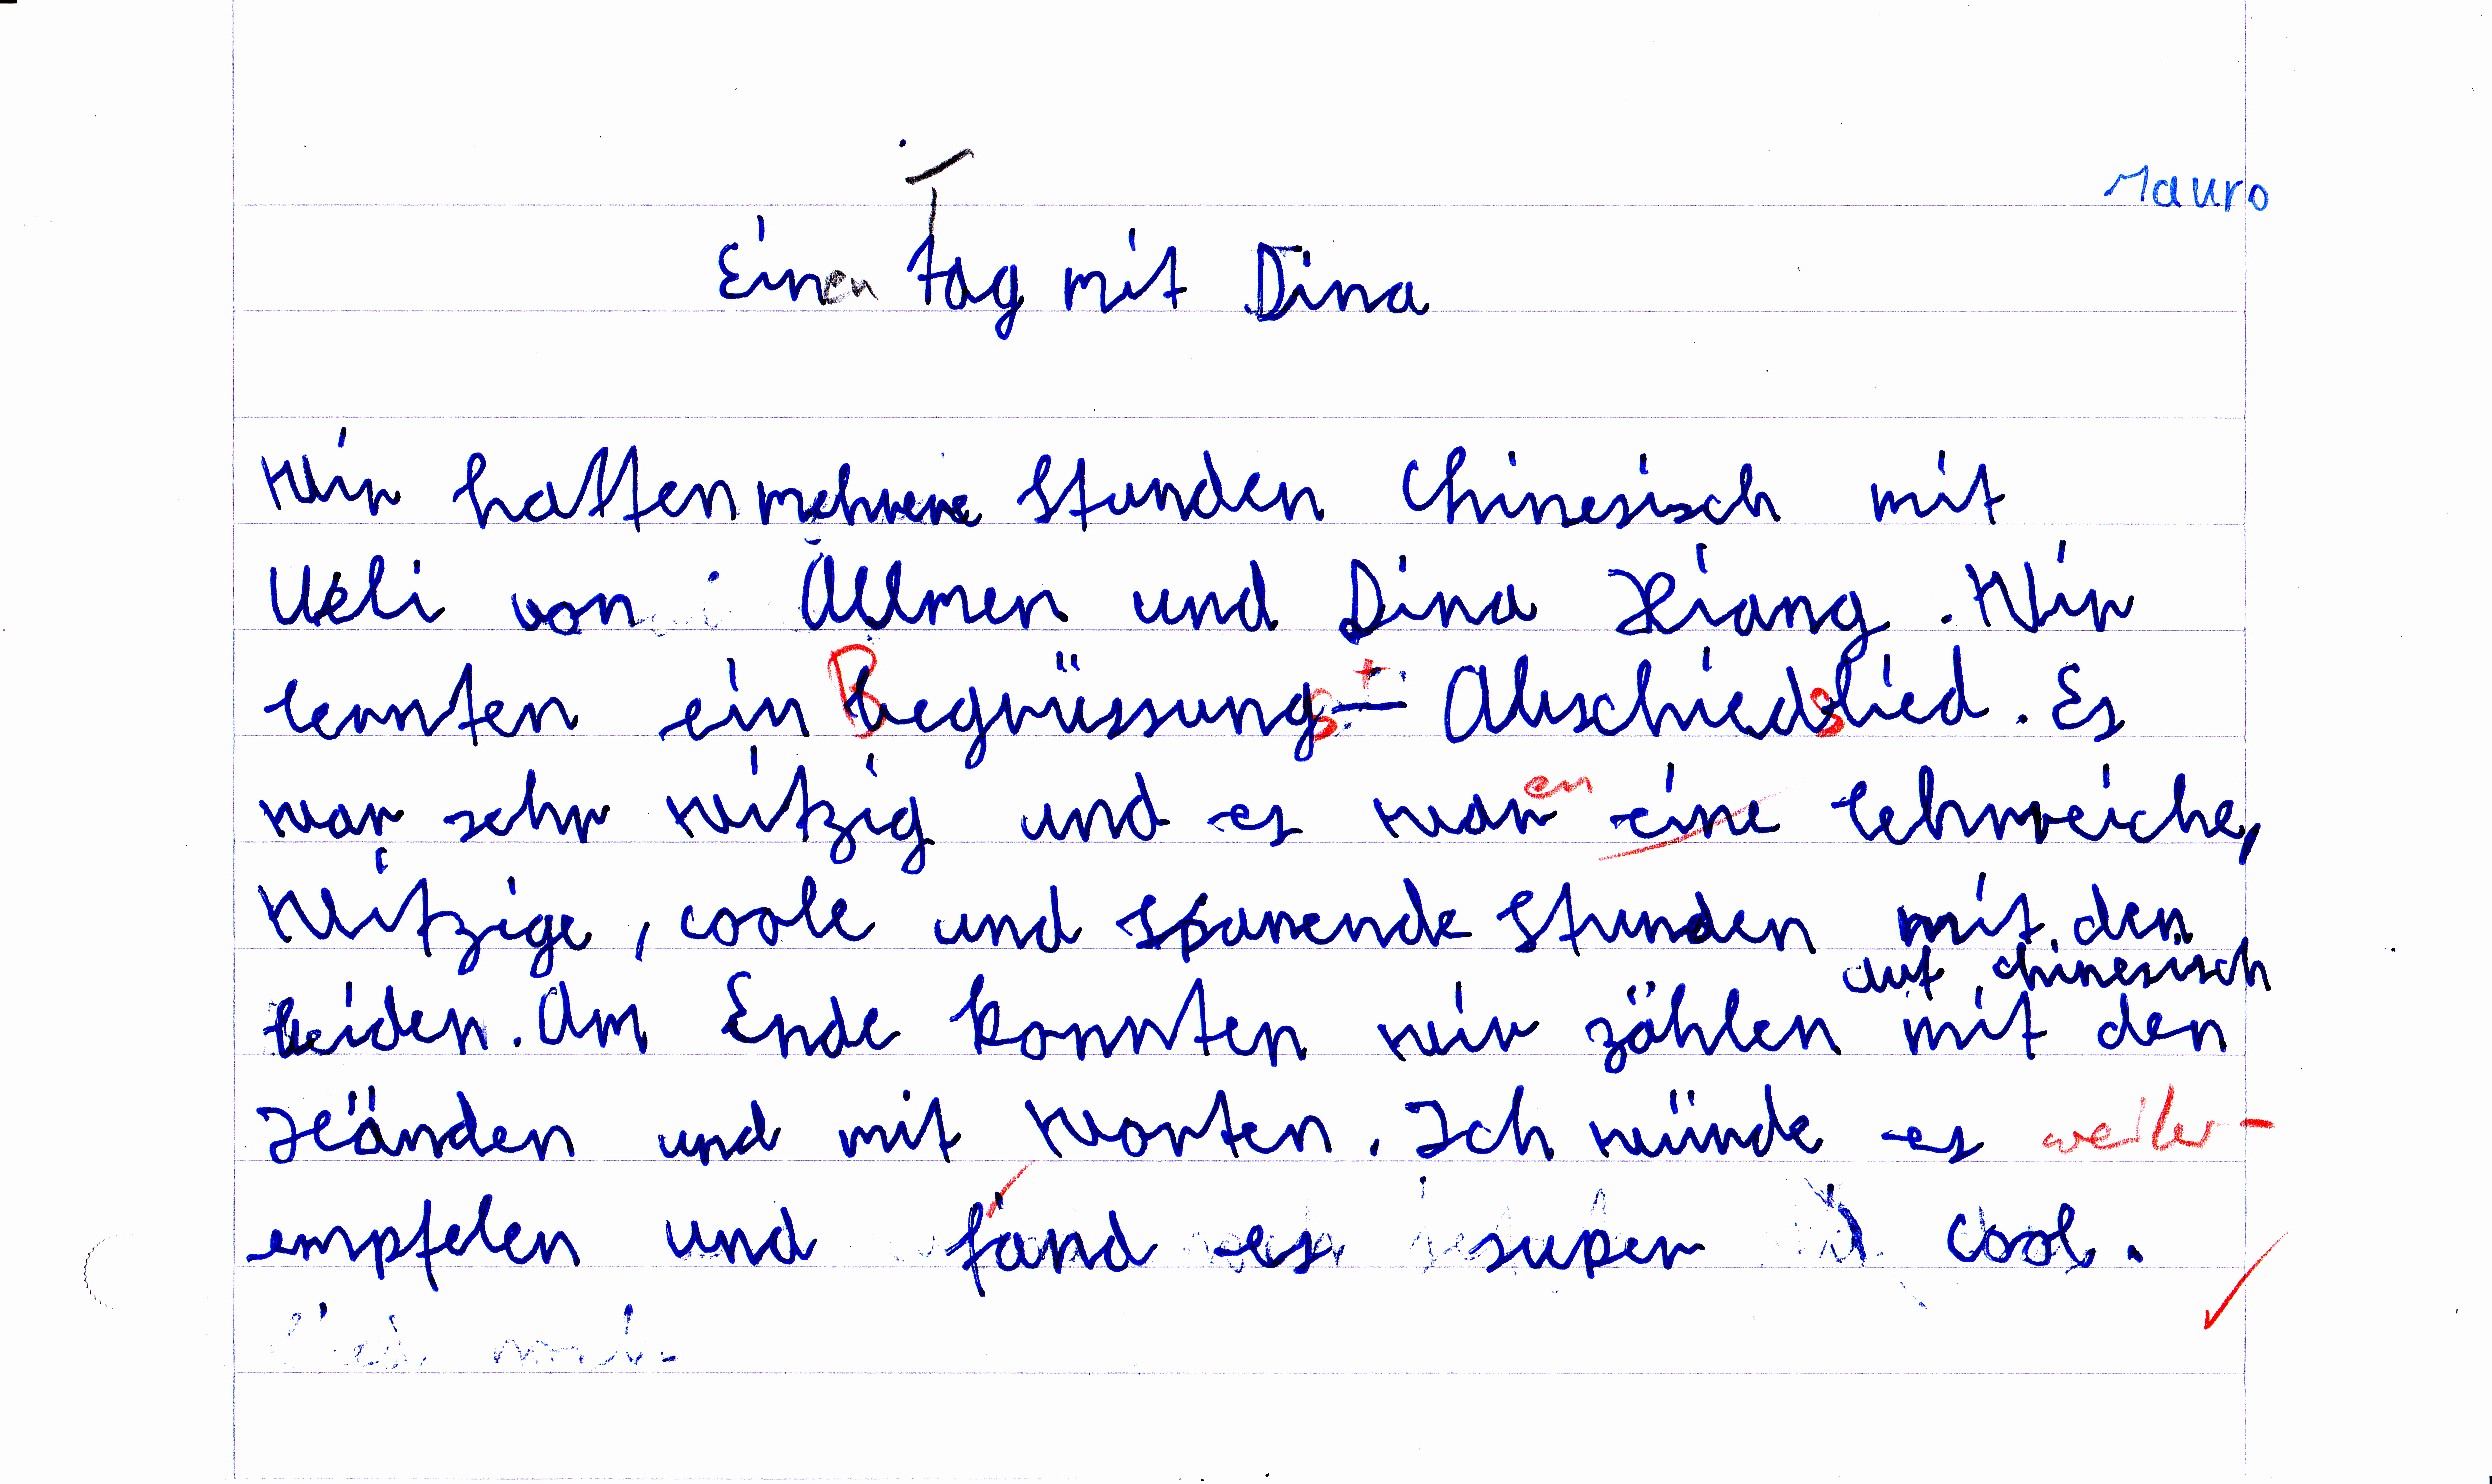 Mauro
Einen Tag mit Dina
Wir hatten mehrere Stunden Chinesisch mit
Ueli von Allmen und Dina Xiang. Wir
lernten ein Begrüssungs + Abschiedslied. Es
war sehr witzig und es waren eine lehrreiche,
witzige, coole und spanende Stunden mit den
beiden. Am Ende konnten wir zählen auf chinesisch mit den
Händen und mit Worten. Ich würde es weiter-
empfelen und fand es super cool.